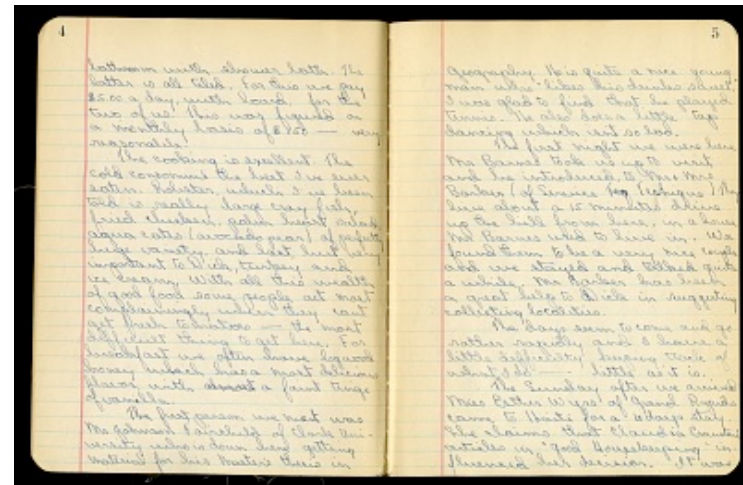 4
bathroom with shower bath. The
latter is all tiled. For this we pay
$5.00 a day, with board, for the
two of us. This was figured on
a monthly basis of $150 — very
reasonable.
The cooking is excellent. The
cold consommé the best I've ever
eaten. Lobster, which I've been
told is really large cray fish,
fried chicken, palm heart salad,
agua cates (avocado pear) of perfectly
huge variety, and last but very
important to Dick, turkey and
ice cream. With all this wealth
of good food some people act most
complainingly when they can't
get fresh tomatoes — the most
difficult thing to get here. For
breakfast we often have logwood
honey which has a most delicious
flavor with almost a faint tinge
of vanilla.
The first person we met was
Mr. Johnson Fairchild of Clark Uni-
versity who is down here getting
material for his Master's thesis in
5
Geography. He is quite a nice young
man who "likes his drinks sweet."
I was glad to find that he played
tennis. He also does a little tap
dancing which isn't so bad.
The first night we were here
Mr. Barnes took us up to visit
and be introduced to Mr. & Mrs.
Barker (of Service Technique). They
live about a 15 minutes drive
up the hill from here, in a house
Mr. Barnes used to live in. We
found them to be a very nice couple
and we stayed and talked quite
a while. Mr. Barker has been
a great help to Dick in suggesting
collecting localities.
The days seem to come and go
rather rapidly and I have a
little difficulty keeping track of
what I do — little as it is.
The Sunday after we arrived
Miss Esther Wyss of Grand Rapids
came to Haiti for a 4 days stay.
She claims that Claudia Cranston's
articles in "Good Housekeeping" in-
fluenced her decision. It was